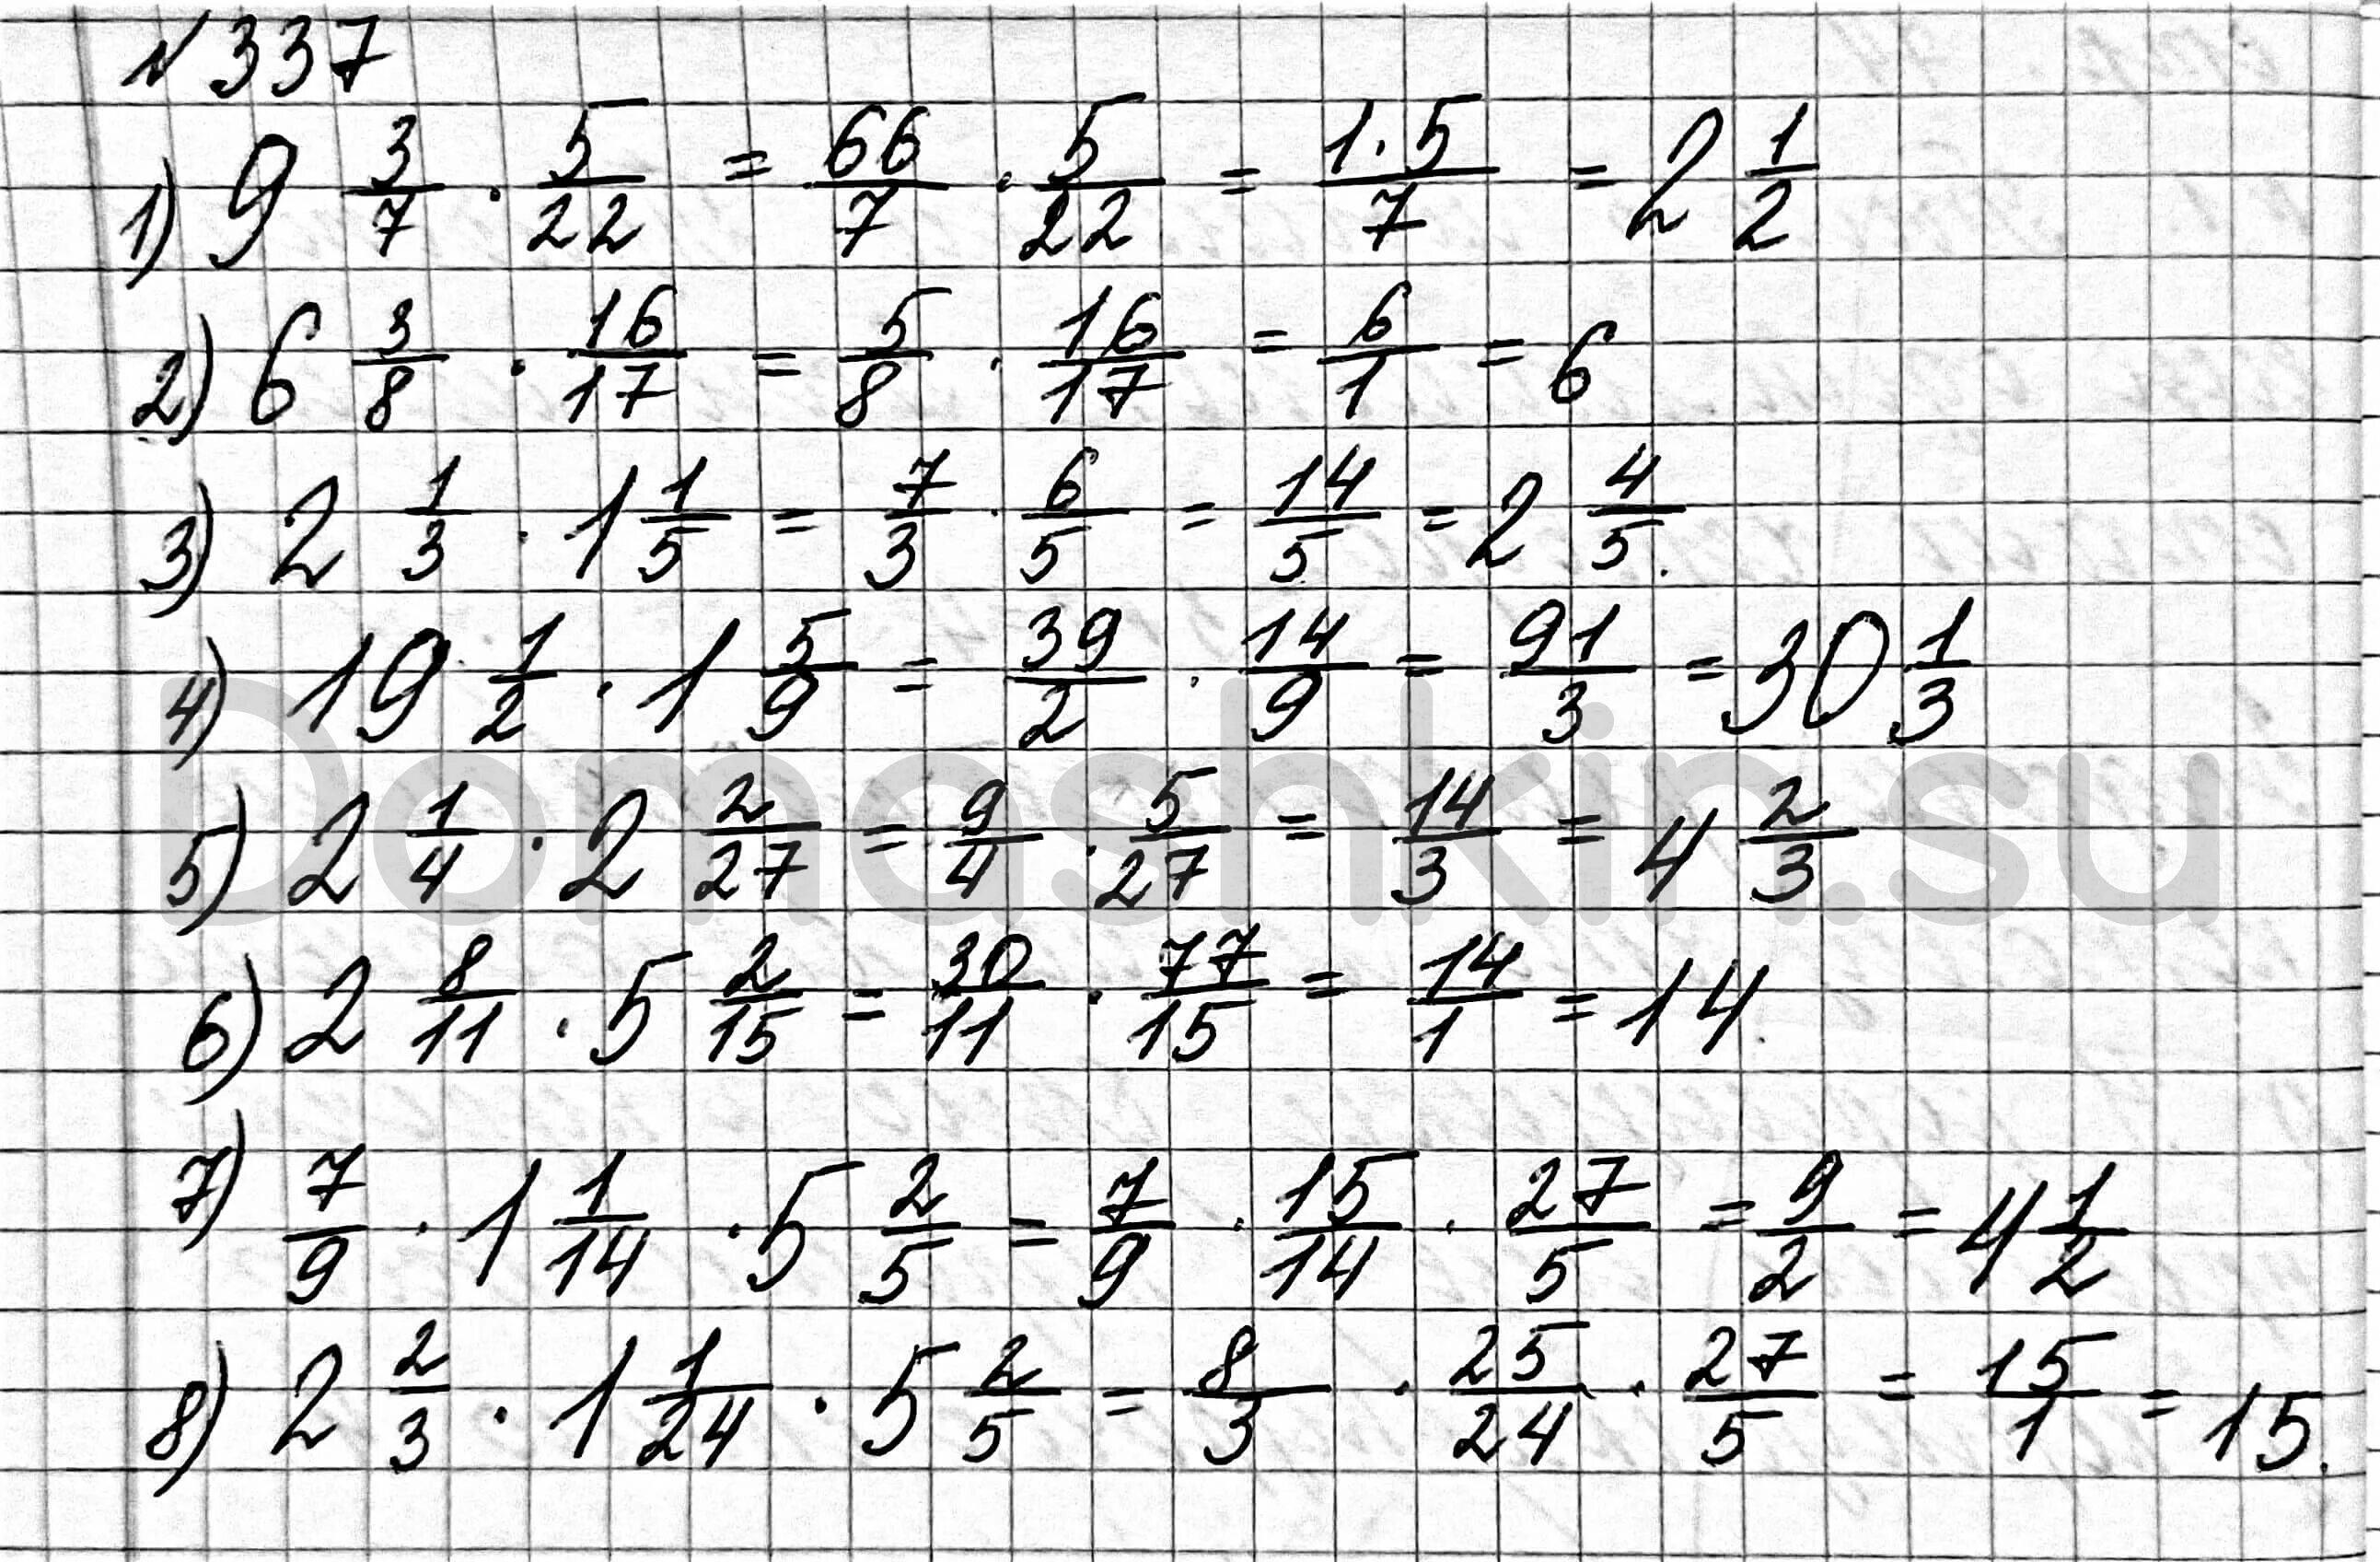 №337
1) 9 3/7 · 5/22 = 66/7 · 5/22 = 1·5/7 = 2 1/2
2) 6 3/8 · 16/17 = 5/8 · 16/17 = 6/1 = 6
3) 2 1/3 · 1 1/5 = 7/3 · 6/5 = 14/5 = 2 4/5.
4) 19 1/2 · 1 5/9 = 39/2 · 14/9 = 91/3 = 30 1/3
5) 2 1/4 · 2 2/27 = 9/4 · 5/27 = 14/3 = 4 2/3
Domashkin.su
6) 2 8/11 · 5 2/15 = 30/11 · 77/15 = 14/1 = 14.
7) 7/9 · 1 1/14 · 5 2/5 = 7/9 · 15/14 · 27/5 = 9/2 = 4 1/2
8) 2 2/3 · 1 1/24 · 5 2/5 = 8/3 · 25/24 · 27/5 = 15/1 = 15.